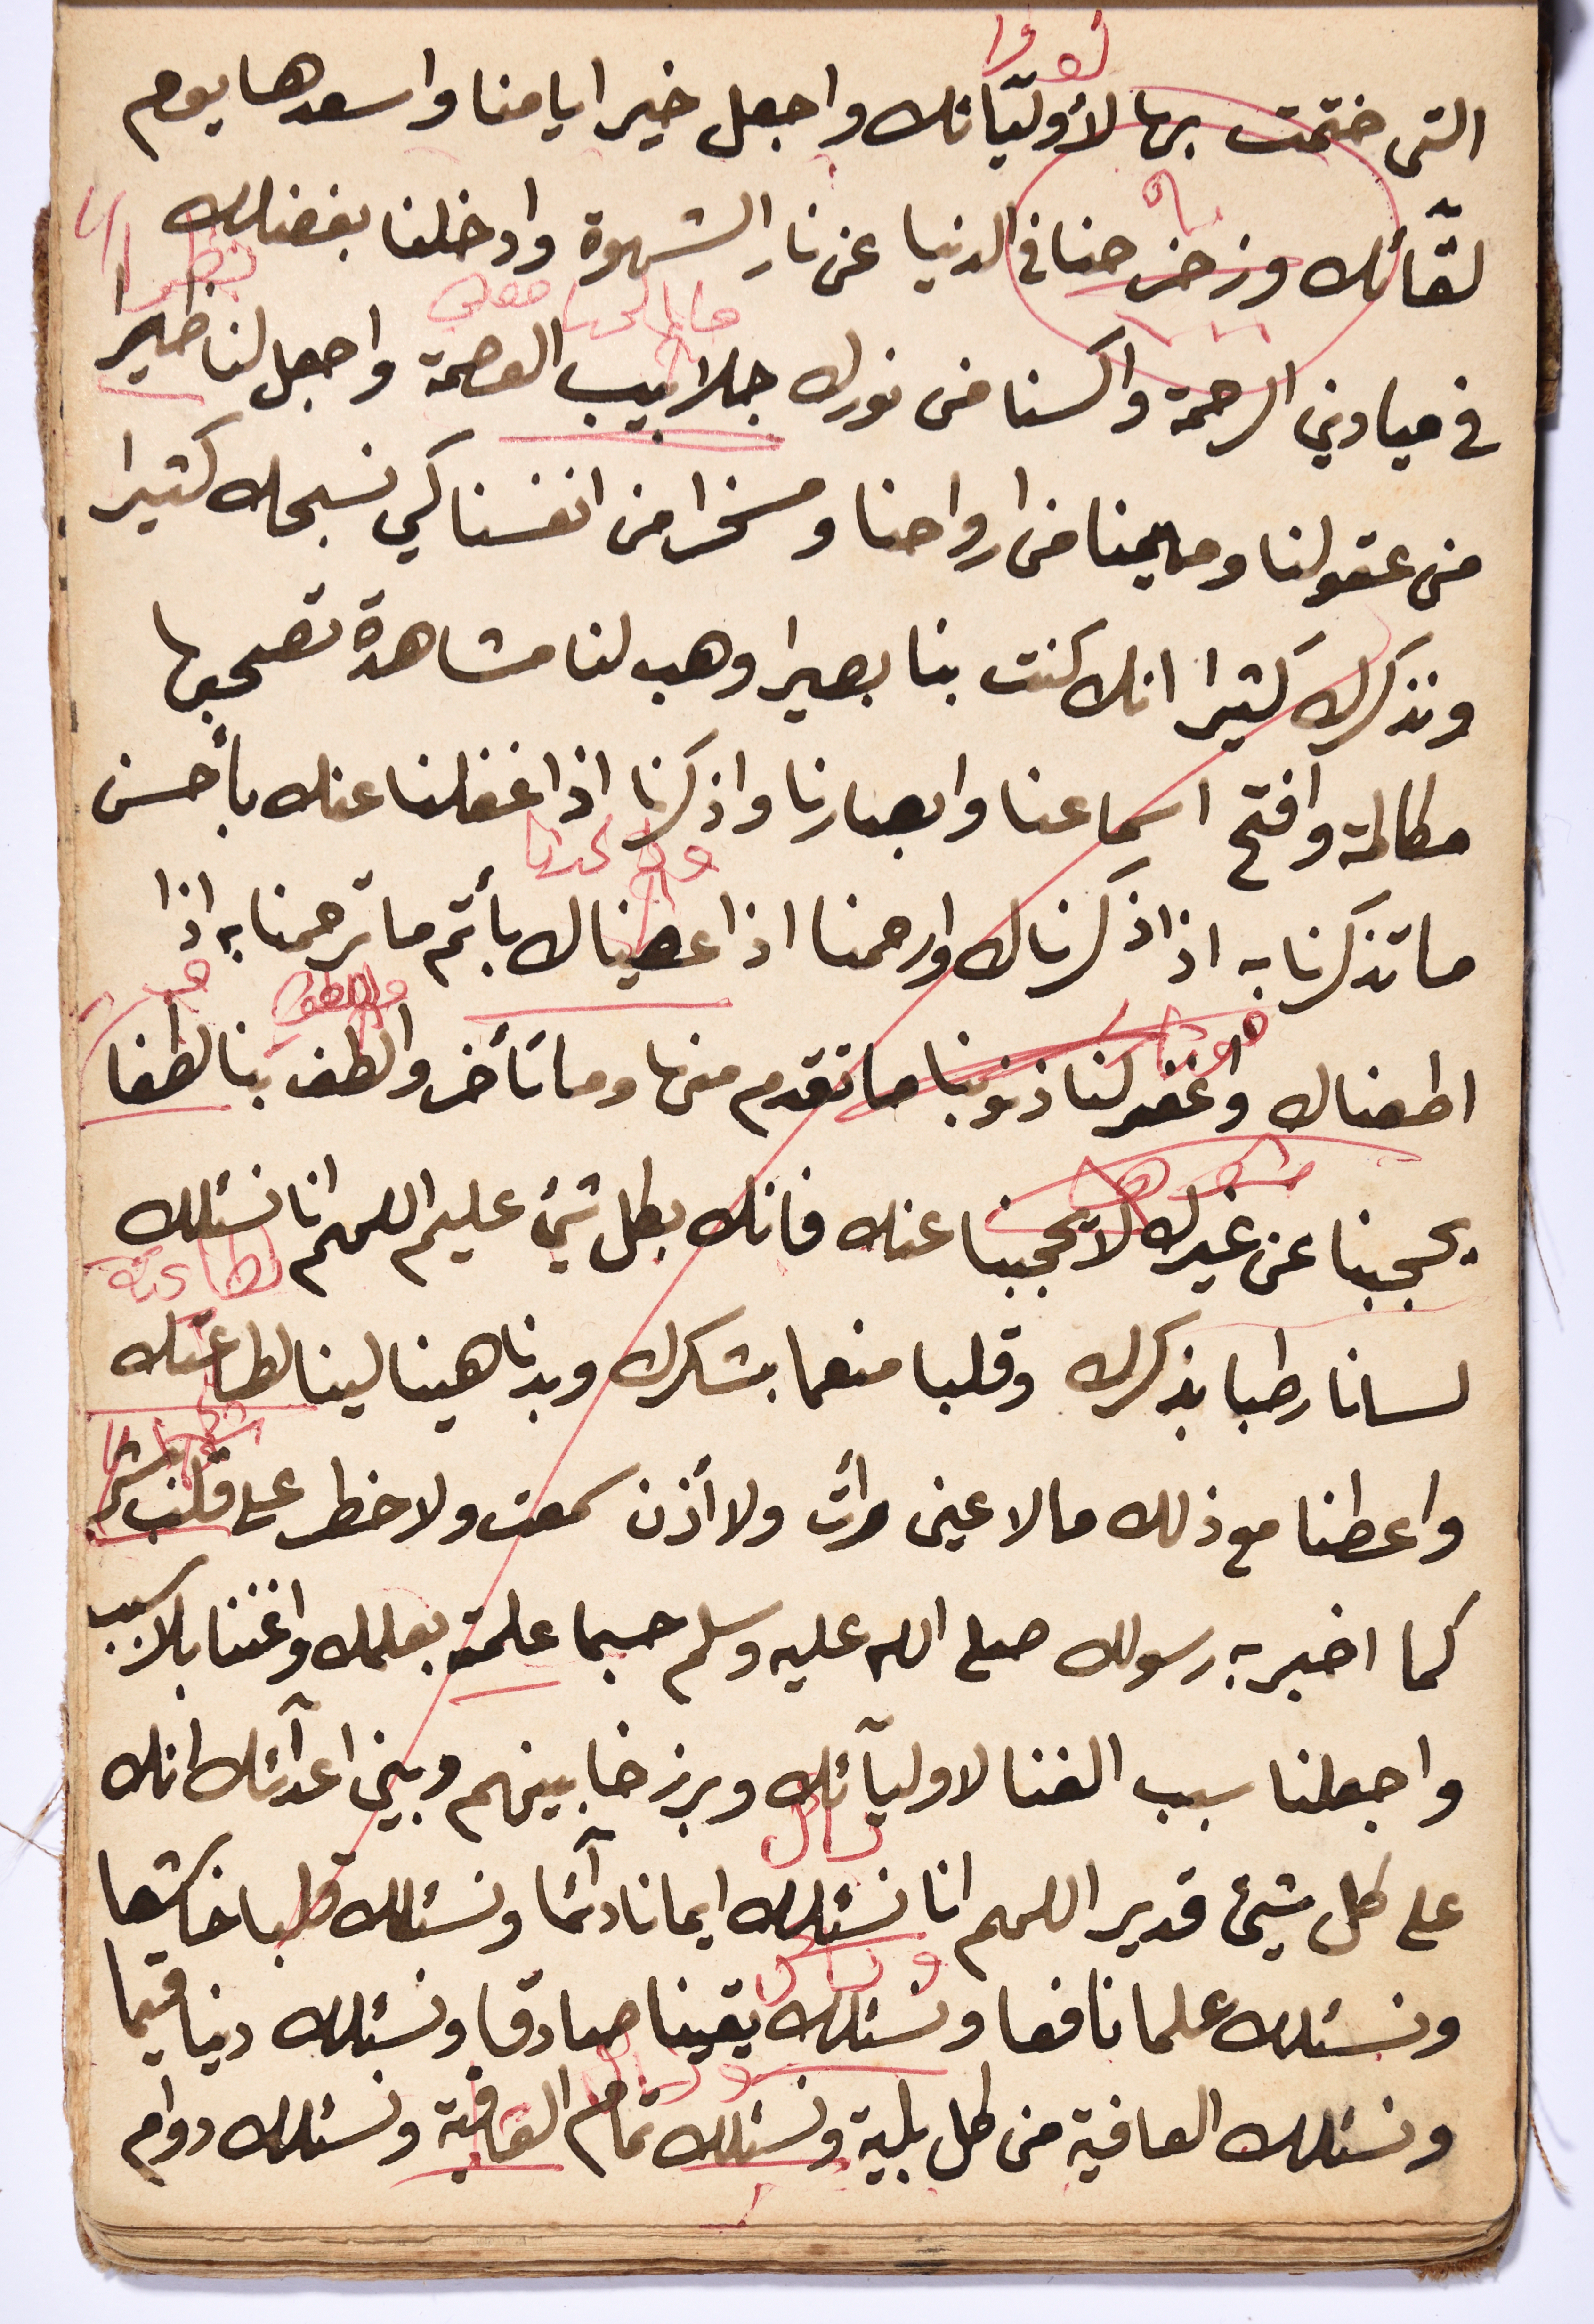 التى ختمت بها لأوليّائك واجعل خير ايامنا واسعدها يوم
لقّائك وزحزحنا فى الدنيا عن نار الشهوة وادخلنا بفضلك
فى ميادين الرحمة واكسنا من نورك جلابيب العصمة واجعل لنا ظهيرا
من عقولنا ومهيمنا من ارواحنا ومسخرا من انفسنا كي نسبحك كثيرا
ونذكرك كثيرا انك كنت بنا بصيرا وهب لنا مشاهدة تصحبها
مكالمة وافتح اسماعنا وابصارنا واذكرنا اذا غفلنا عنك بأحسن
ما تذكرنا به اذا ذكرناك وارحمنا اذا عصيناك بأتم ما ترحمنا به اذا
اطعناك واغفر لنا ذنوبنا ما تقدم منها وما تأخر والطف بنا لطفا
يحجبنا عن غيرك لا يحجبنا عنك فانك بكل شئ عليم اللهم انا نسئلك
لسانا رطبا بذكرك وقلبا منعما بشكرك وبدنا هينا لينا لطاعتك
واعطنا مع ذلك ما لا عين رأت ولا أذن سمعت ولا خطر على قلب بشر
كما اخبر به رسولك صلى الله عليه وسلم حسبما علمته بعلمك واغننا بلا سبب
واجعلنا سبب الغنا لاوليآئك وبرزخا بينهم وبين اعدآئك انك
على كل شيئ قدير اللهم انا نسئلك ايمانا دآئما ونسئلك قلبا خاشعا
ونسئلك علما نافعا ونسئلك يقينا صادقا ونسئلك دينا قيما
ونسئلك العافية من كل بلية ونسئلك تمام العافية ونسئلك دوام